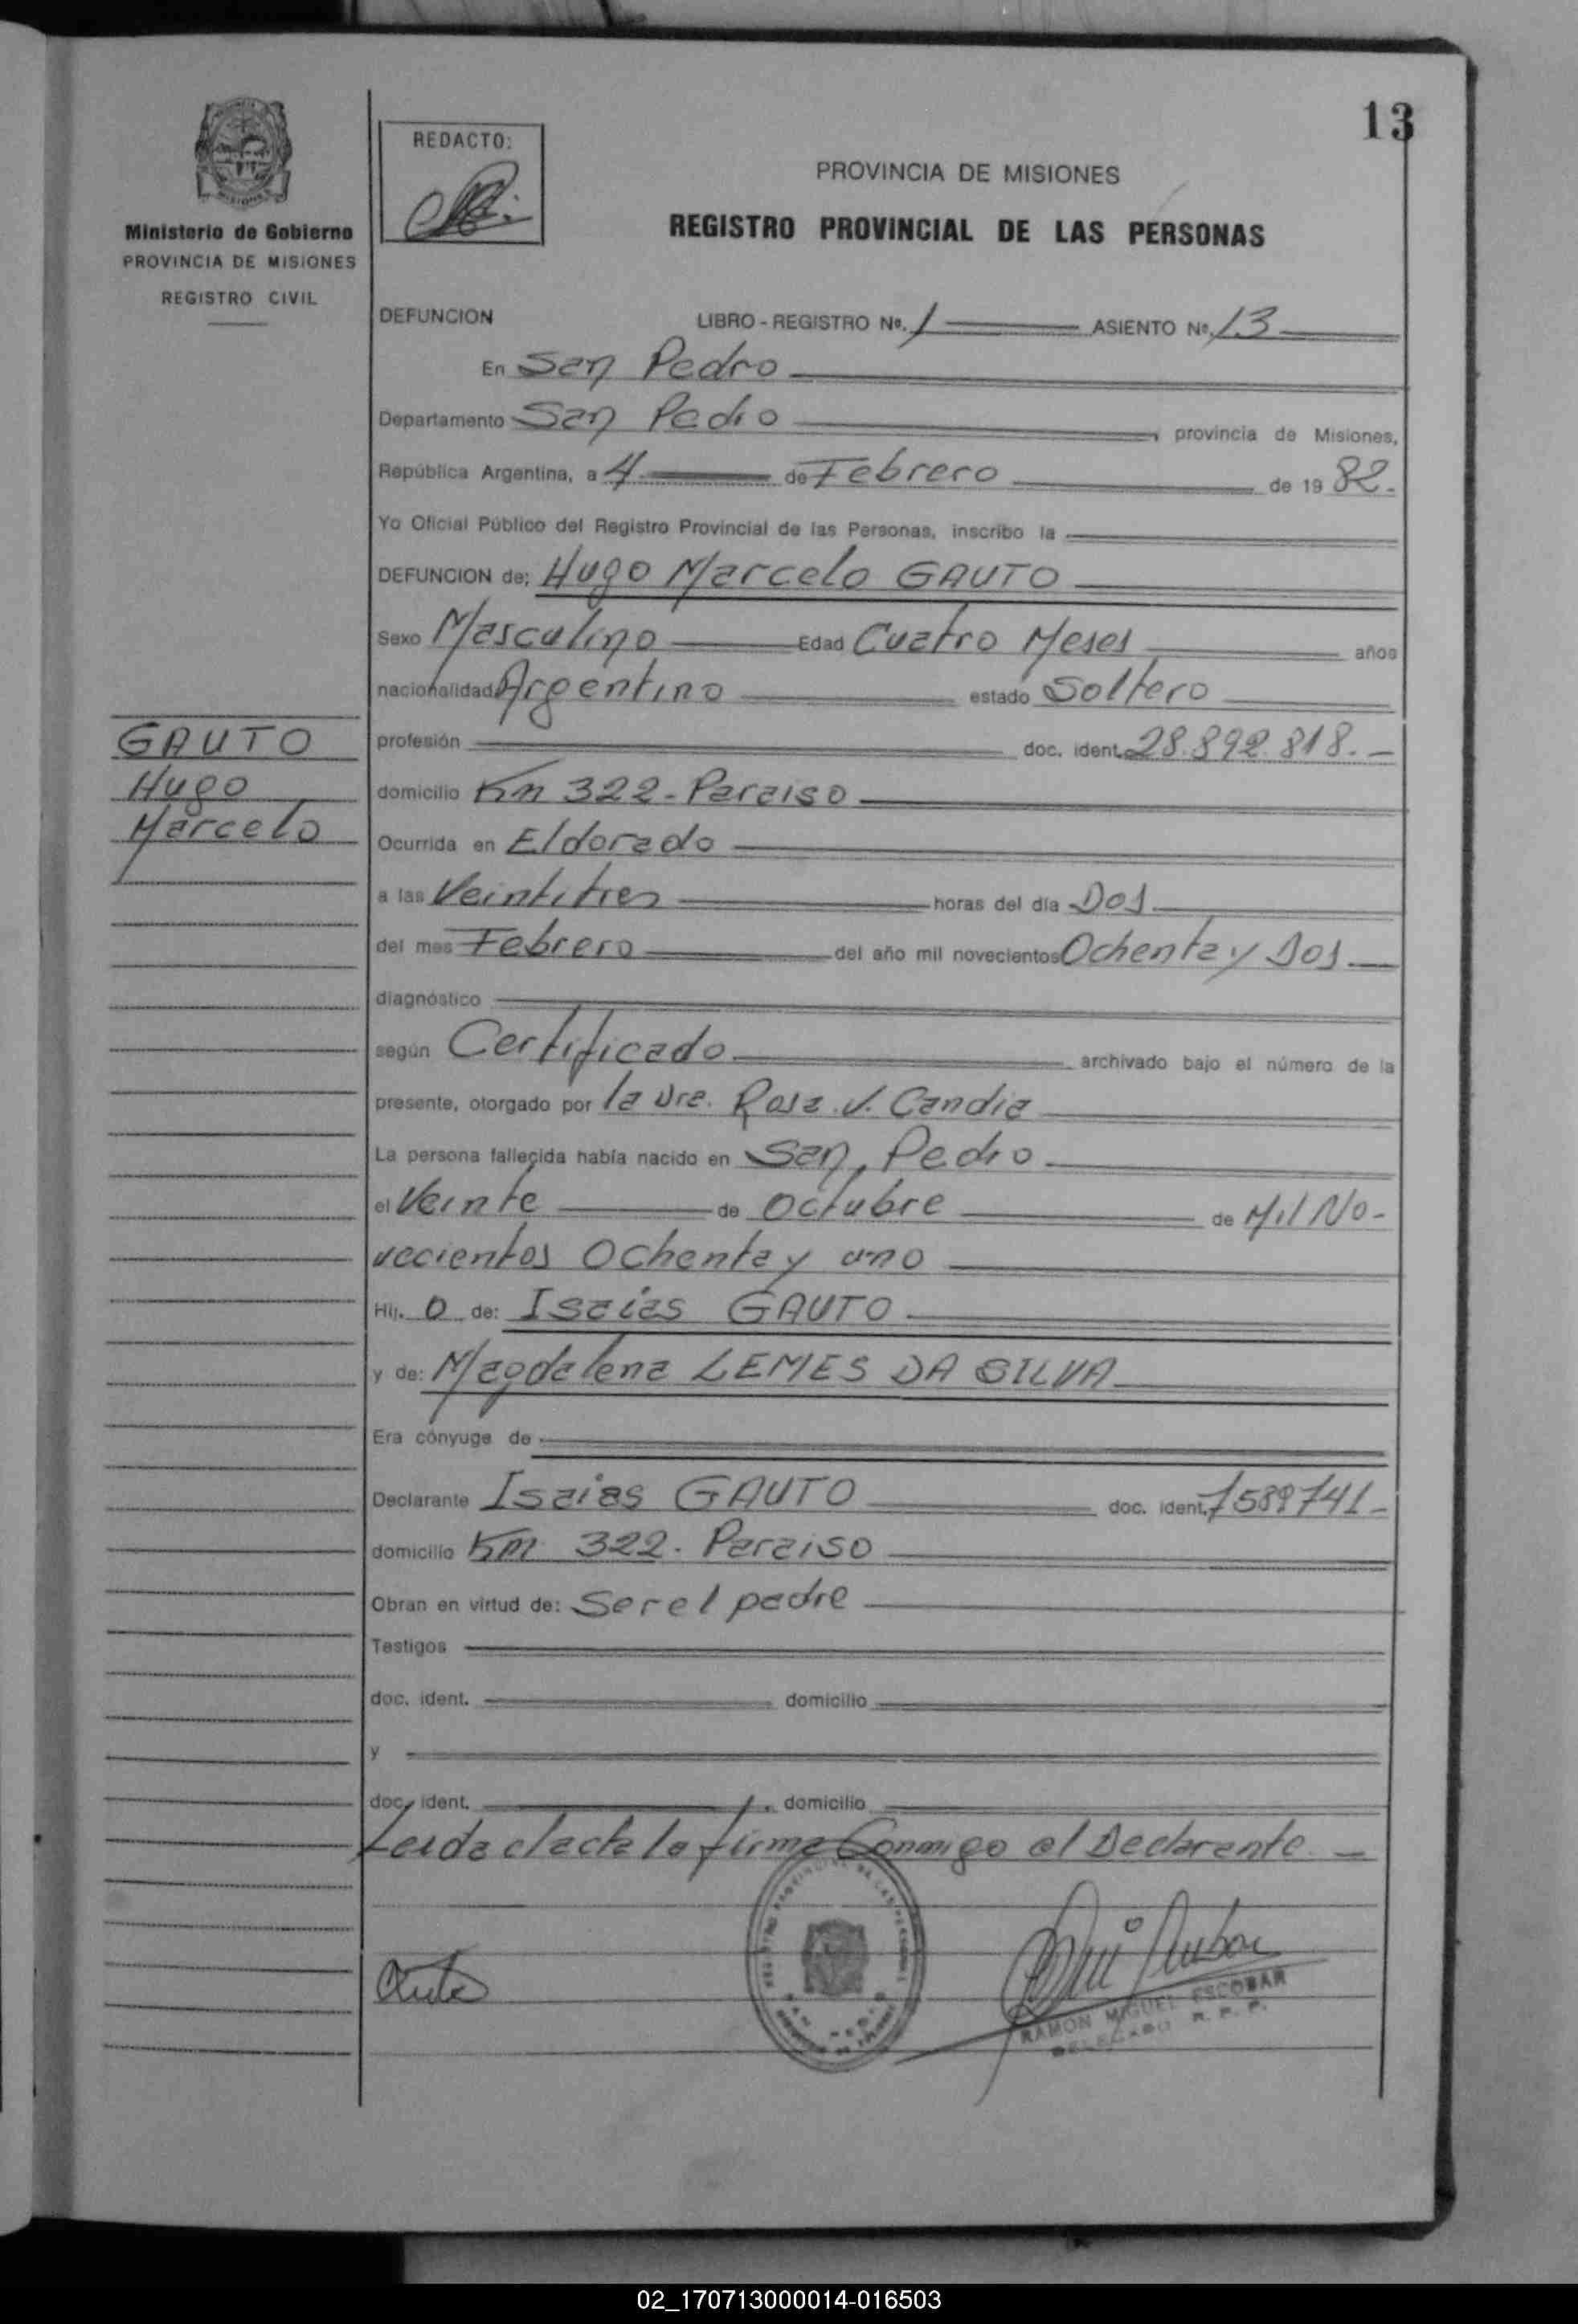 13
Ministerio de Gobierno
PROVINCIA DE MISIONES
REGISTRO CIVIL
REDACTO:
PROVINCIA DE MISIONES
REGISTRO PROVINCIAL DE LAS PERSONAS
DEFUNCION LIBRO - REGISTRO Nº. 1 ASIENTO Nº. 13
En San Pedro
Departamento San Pedro, provincia de Misiones,
República Argentina, a 4 de Febrero de 19 82.
Yo Oficial Público del Registro Provincial de las Personas, inscribo la
DEFUNCION de; Hugo Marcelo GAUTO
Sexo Masculino Edad Cuatro Meses años
nacionalidad Argentino estado Soltero
profesión doc. ident. 28.892.818.-
domicilio Km 322 - Paraiso
Ocurrida en Eldorado
a las Veintitres horas del día Dos
del mes Febrero del año mil novecientos Ochenta y Dos
diagnóstico
según Certificado archivado bajo el número de la
presente, otorgado por la Dra. Rosa J. Candia
La persona fallecida había nacido en San Pedro
el Veinte de Octubre de Mil No-
vecientos Ochenta y uno
Hij. o de: Isaias GAUTO
y de: Magdalena LEMES DA SILVA
Era cónyuge de
Declarante Isaias GAUTO doc. ident. 7589741-
domicilio Km 322. Paraiso
Obran en virtud de: Ser el padre
Testigos
doc. ident. domicilio
y
doc. ident. domicilio
Leida el acta la firma Conmigo el Declarante. -
RAMON MIGUEL ESCOBAR
DELEGADO R. P. P.
GAUTO
Hugo
Marcelo
02_170713000014-016503